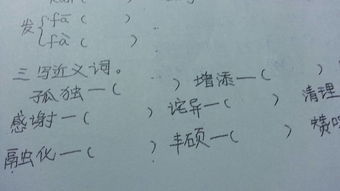 发{ fā（ ）
fà（ ）
三 写近义词。
孤独一（ ） 增添一（ ）
感谢一（ ） 诧异一（ ） 清理
融化一（ ） 丰硕一（ ）